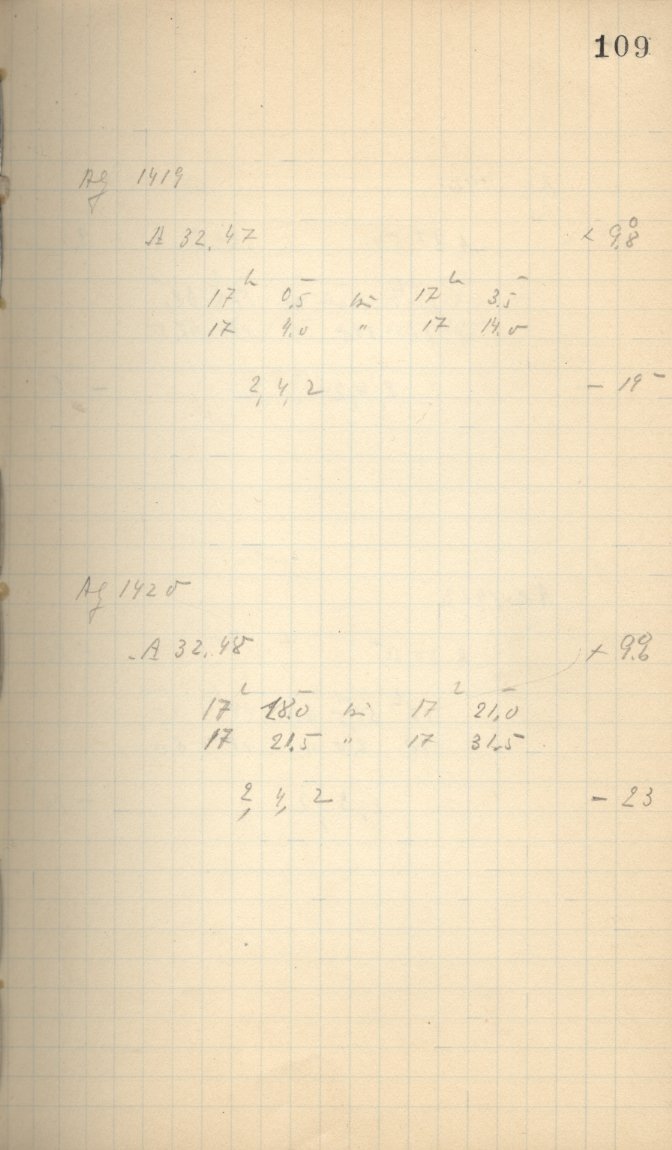 109
Ag 1419
A 32.47 + 9°.8
17ʰ 0.5 bis 17ʰ 3.5
17 4.0 " 17 14.0
2, 4, 2 - 19
Ag 1420
A 32.48 + 9°.6
17ʰ 18.0 bis 17ʰ 21.0
17 21.5 " 17 31.5
2, 4, 2 - 23